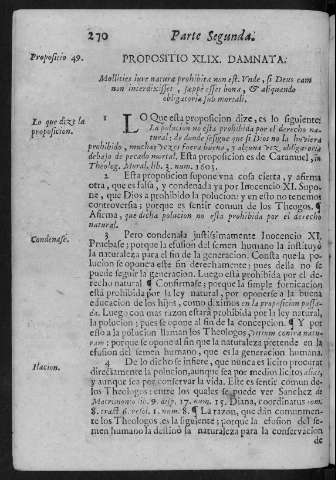 270 Parte Segunda.
Propositio 49.
PROPOSITIO XLIX. DAMNATA.
Mollities iure naturæ prohibita non est. Vnde, si Deus eam
non interdixisset, sæpè esset bona, & aliquando
obligatoria sub mortali.
Lo que dize la
proposicion.
1 LO Que esta proposicion dize, es lo siguiente:
La polucion no està prohibida por el derecho na-
tural: de donde se sigue que si Dios no la huviera
prohibido, muchas vezes fuera buena, y alguna vez obligatoria
debajo de pecado mortal. Esta proposicion es de Caramuel, in
Theolog. Moral. lib. 2. num. 1605.
2 Esta proposicion supone vna cosa cierta, y afirma
otra, que es falsa, y condenada yà por Inocencio XI. Supo-
ne, que Dios à prohibido la polucion; y en esto no tenemos
controversia; porque es sentir comun de los Theogos. ¶
Afirma, que dicha polucion no està prohibida por el derecho
natural.
Condenase.
3 Pero condenala justissimamente Inocencio XI.
Pruebase; porque la efusion del semen humano la instituyò
la naturaleza para el fin de la generacion. Consta que la po-
lucion se opone à este fin derechamente; pues della no se
puede seguir la generacion. Luego està prohibida por el de-
recho natural ¶ Confirmase; porque la simple fornicacion
està prohibida por la ley natural, por oponerse à la buena
educacion de los hijos, como diximos en la proposicion passa-
da. Luego con mas razon estarà prohibida por la ley natural,
la polucion; pues se opone al fin de la concepcion. ¶ Y por
esso à la polucion llaman los Theologos, pecado contra natu-
ram; porque se opone al fin que la naturaleza pretende en la
efusion del semen humano, que es la generacion humana.
Ilacion.
4 De lo dicho se infiere, que nunca es licito procurar
directamente la polucion, aunque sea por medios licitos aliàs,
y aunque sea por conservar la vida. Este es sentir comun de
los Theologos: entre los quales se puede ver Sanchez de
Matrimonio lib. 9. disp. 17. num. 15. Diana, coordinatus tom.
8. tract. 6. resol. 1. num. 8. ¶ La razon, que dàn comunmen-
te los Theologos, es la siguiente; porque la efusion del se-
men humano la destinò la naturaleza para la conservacion
de